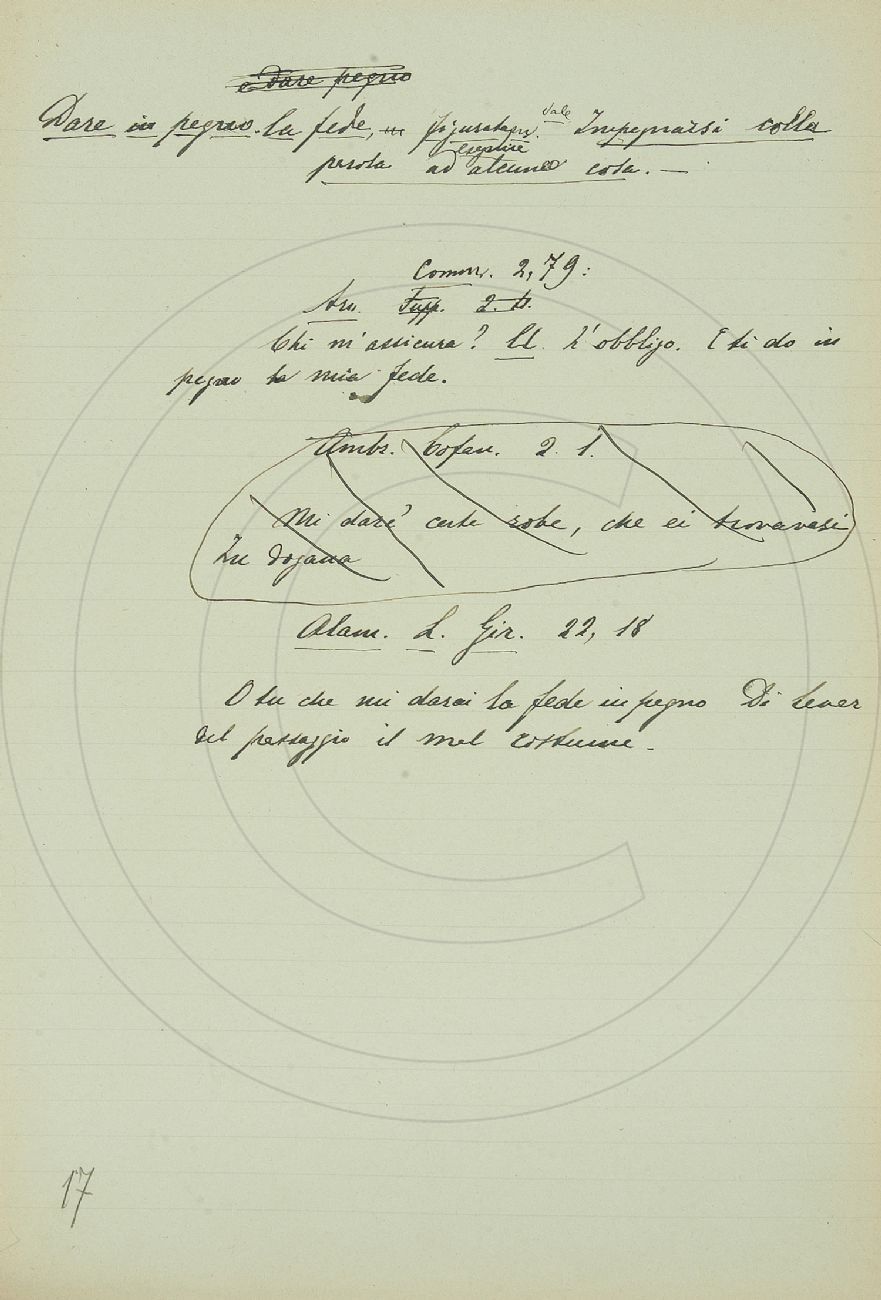 e Dare pegno
Dare in pegno la fede, figuratam. vale Impegnarsi colla
parola ad eseguire alcuna cosa. —
Comm. 2, 79:
Ari. Supp. 2. 4.
Chi m'assicura? Cl. L'obbligo. E ti do in
pegno la mia fede.
Ambr. Cofan. 2. 1.
Mi darà certe robe, che ei trovavasi
In dogana
Alam. L. Gir. 22, 18
O tu che mi darai la fede in pegno Di lever
del passaggio il mal costume.
17